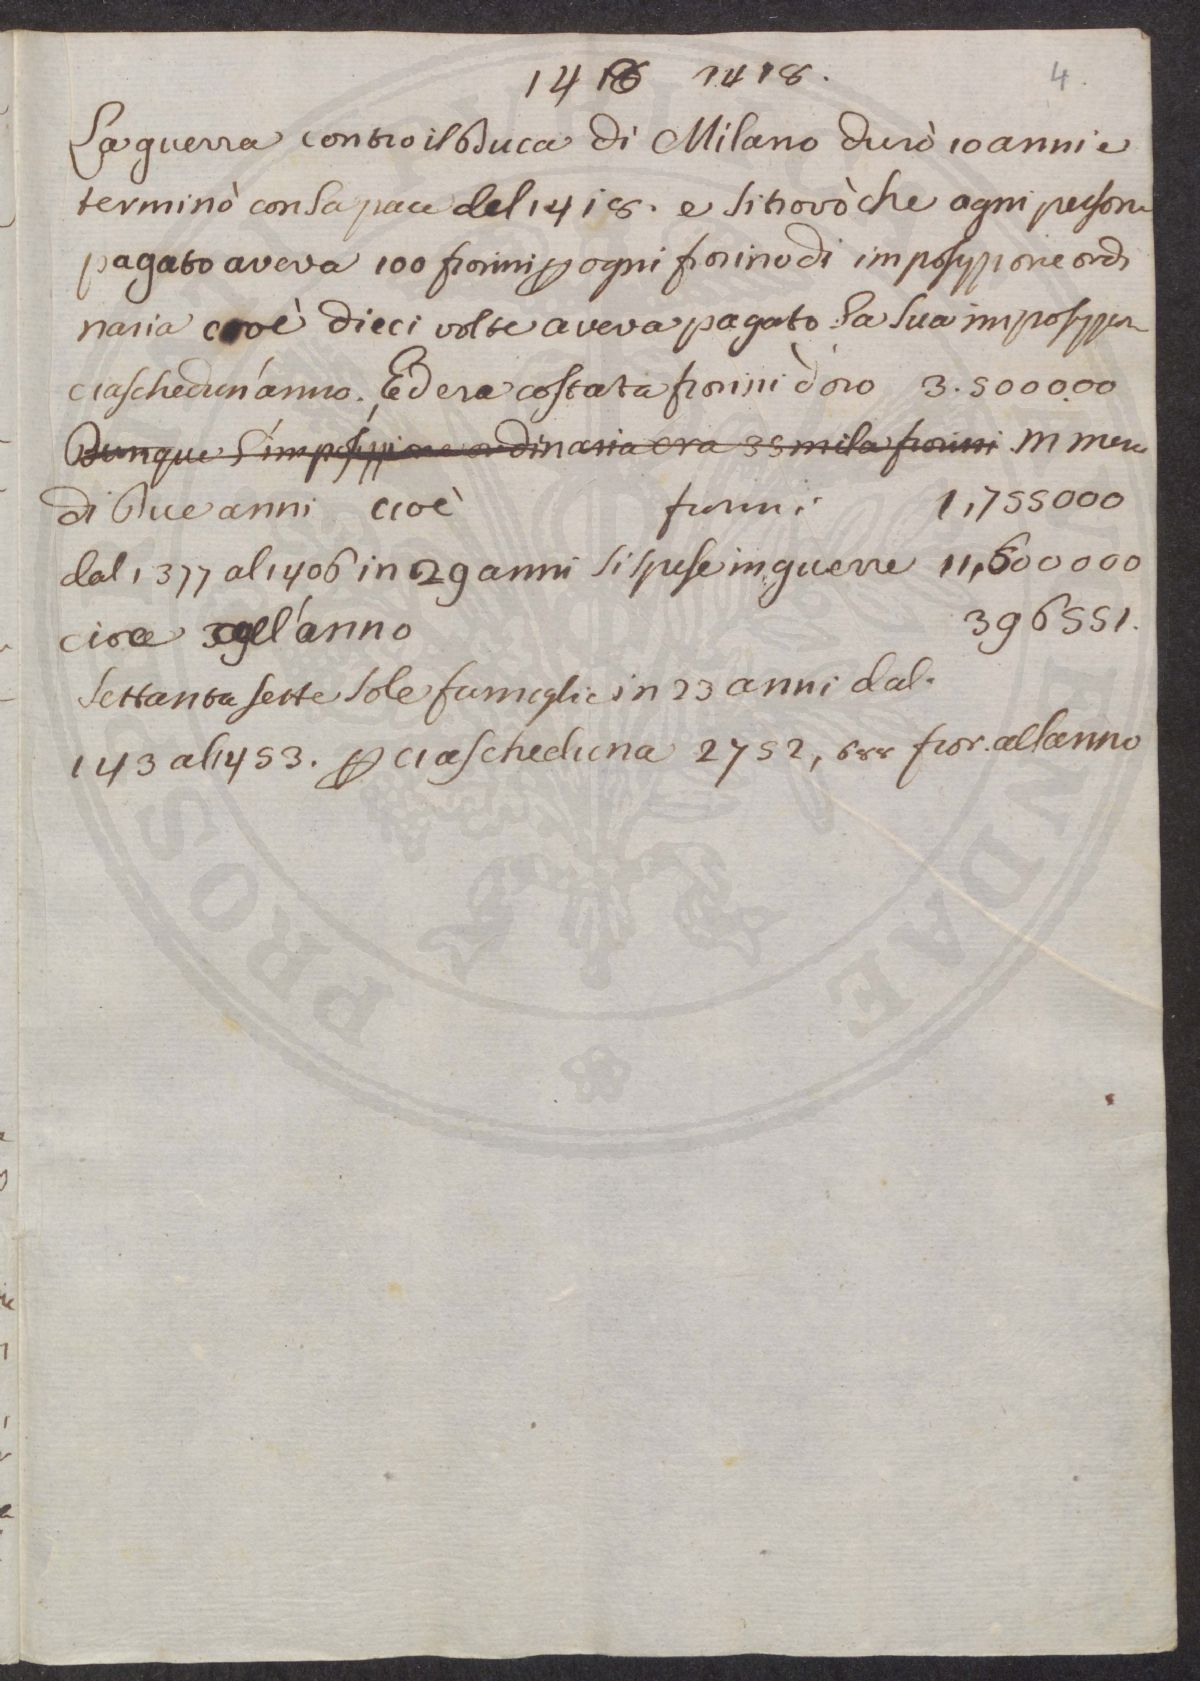 1418 1418. 4.
La guerra contro il Duca di Milano durò 10 anni e
terminò con la pace del 1418. e si trovò che ogni person
pagato aveva 100 fiorini p ogni fiorino di imposizzione ordi
naria cioè dieci volte aveva pagato la sua imposizzion
ciaschedun'anno. Ed era costata fiorini d'oro 3.500000
Dunque l'imposizzione ordinaria era 35 mila fiorini. In meno
di Due anni cioè fiorini 1,755000
dal 1377 al 1406 in 29 anni si spese in guerre 11,600000
cioe all'anno 396551.
Settanta sette sole famiglie in 23 anni dal.
143 al 1453. p ciascheduna 2752, fior. all'anno
PROS
NDAE